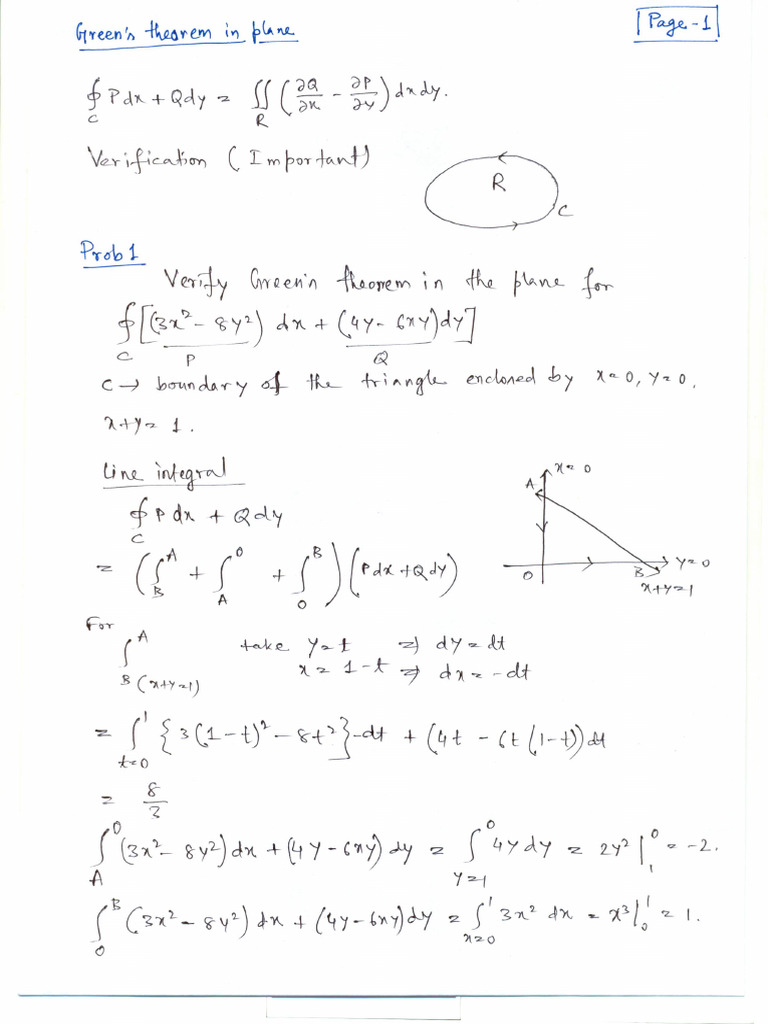 Green's theorem in plane
Page-1
∮_C Pdx + Qdy = ∬_R (∂Q/∂x - ∂P/∂y) dxdy.
Verification (Important)
R
C
Prob 1
Verify Green's theorem in the plane for
∮_C [(3x² - 8y²) dx + (4y - 6xy) dy]
P Q
C → boundary of the triangle enclosed by x=0, y=0,
x+y = 1.
Line integral
x=0
A
∮_C P dx + Q dy
= (∫_B^A + ∫_A^0 + ∫_0^B) (Pdx + Qdy)
O
B
y=0
x+y=1
For
∫_{B (x+y=1)}^A take y=t ⇒ dy = dt
x = 1-t ⇒ dx = -dt
= ∫_{t=0}^1 {3(1-t)² - 8t²} -dt + (4t - 6t(1-t)) dt
= 8/3
∫_A^0 (3x² - 8y²) dx + (4y - 6xy) dy = ∫_{y=1}^0 4y dy = 2y² |_1^0 = -2.
∫_0^B (3x² - 8y²) dx + (4y - 6xy) dy = ∫_{x=0}^1 3x² dx = x³ |_0^1 = 1.